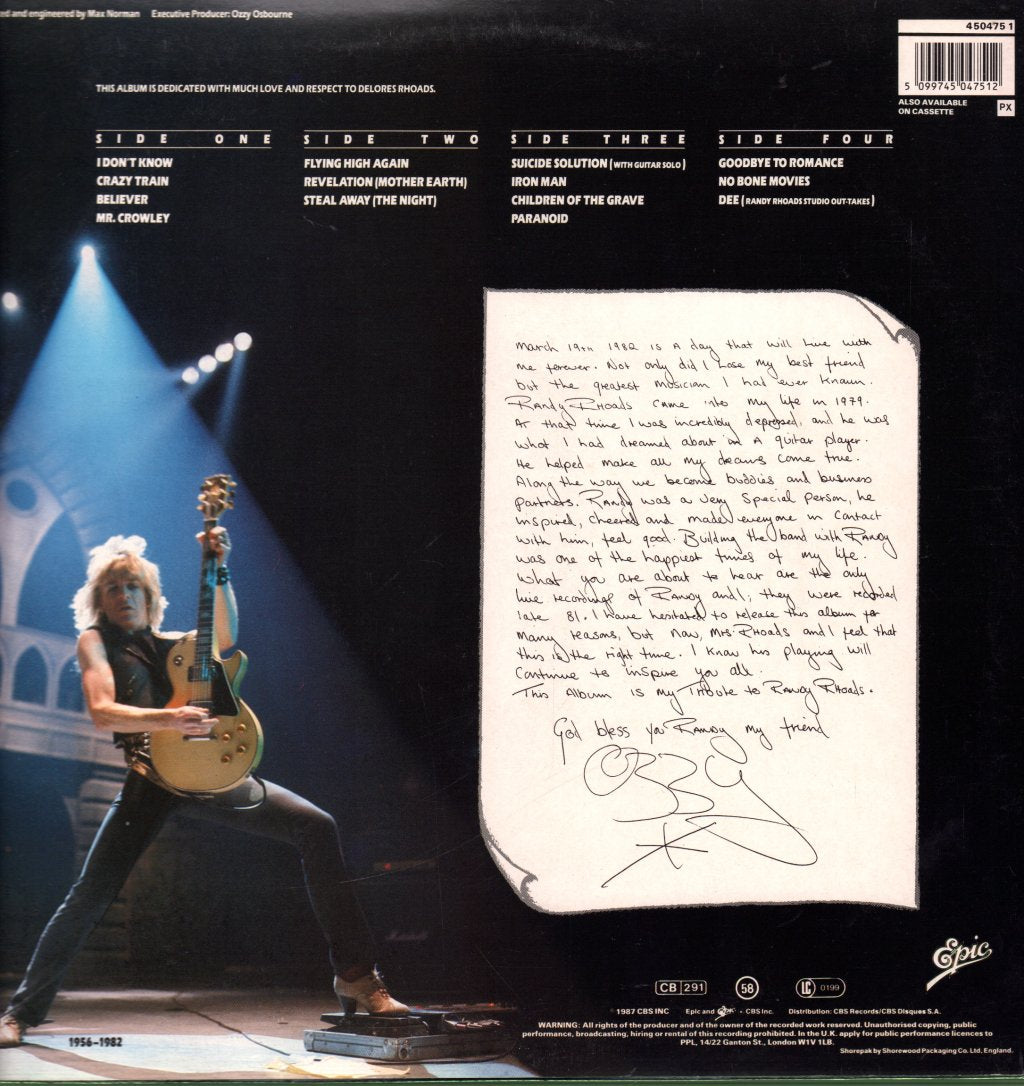 ed and engineered by Max Norman Executive Producer: Ozzy Osbourne
450475 1
5 099745 047512
ALSO AVAILABLE
ON CASSETTE
PX
THIS ALBUM IS DEDICATED WITH MUCH LOVE AND RESPECT TO DELORES RHOADS.
SIDE ONE
I DON'T KNOW
CRAZY TRAIN
BELIEVER
MR. CROWLEY
SIDE TWO
FLYING HIGH AGAIN
REVELATION (MOTHER EARTH)
STEAL AWAY (THE NIGHT)
SIDE THREE
SUICIDE SOLUTION (WITH GUITAR SOLO)
IRON MAN
CHILDREN OF THE GRAVE
PARANOID
SIDE FOUR
GOODBYE TO ROMANCE
NO BONE MOVIES
DEE (RANDY RHOADS STUDIO OUT-TAKES)
March 19th 1982 is A day that will live with
me forever. Not only did I lose my best friend
but the greatest musician I had ever known.
Randy Rhoads came into my life in 1979.
At that time I was incredibly depressed, and he was
what I had dreamed about in A guitar player.
He helped make all my dreams come true.
Along the way we became buddies and business
partners. Randy was a very special person, he
inspired, cheered and made everyone in contact
with him, feel good. Building the band with Randy
was one of the happiest times of my life.
What you are about to hear are the only
live recordings of Randy and I; they were recorded
late 81. I have hesitated to release this album for
many reasons, but now, Mrs. Rhoads and I feel that
this is the right time. I know his playing will
continue to inspire you all.
This Album is my Tribute to Randy Rhoads.
God bless you Randy my friend
Ozzy
Epic
CB 291
58
LC 0199
℗ 1987 CBS INC Epic and Epic - CBS Inc. Distribution: CBS Records/CBS Disques S.A.
WARNING: All rights of the producer and of the owner of the recorded work reserved. Unauthorised copying, public
performance, broadcasting, hiring or rental of this recording prohibited. In the U.K. apply for public performance licences to
PPL, 14/22 Ganton St., London W1V 1LB.
Shorepak by Shorewood Packaging Co. Ltd, England.
1956-1982